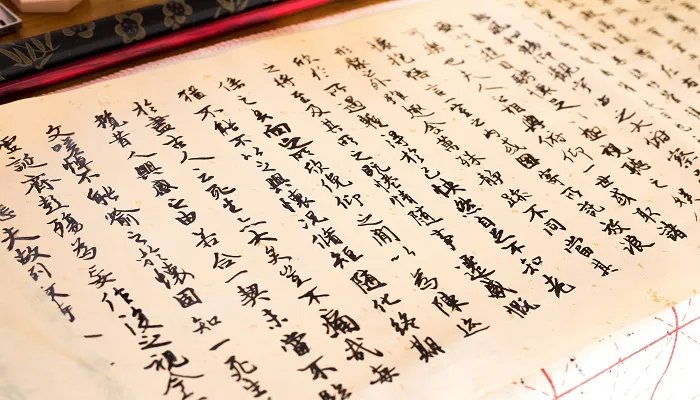 風和暢仰觀宇宙之大俯察
遊目騁懷足以極視聽之
可樂也夫人之相與俯仰一世或取諸
懷抱悟言一室之內或因寄所託放浪
形骸之外雖趣舍萬殊靜躁不同當其
欣於所遇暫得於己快然自足不知老
之將至及其所之既倦情隨事遷感慨
係之矣向之所欣俛仰之間以為陳迹
猶不能不以之興懷況脩短隨化終期
於盡古人云死生亦大矣豈不痛哉每
攬昔人興感之由若合一契未嘗不臨
文嗟悼不能喻之於懷固知一死生
虛誕齊彭殤為妄作後之視今
悲夫故列